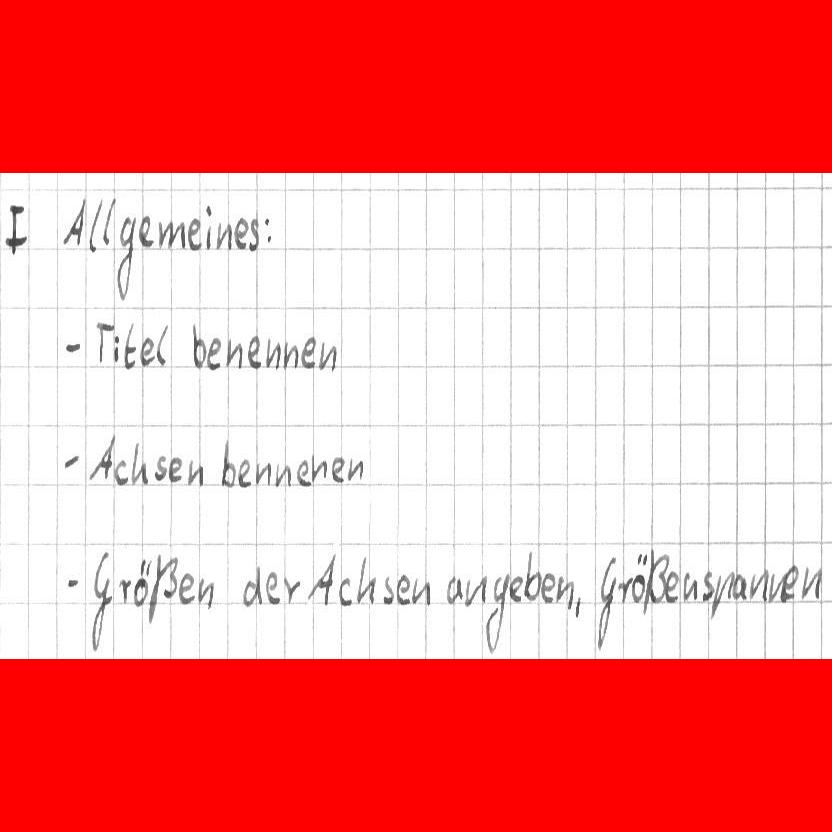 I Allgemeines:
- Titel benennen
- Achsen bennenen
- Größen der Achsen angeben, Größenspannen